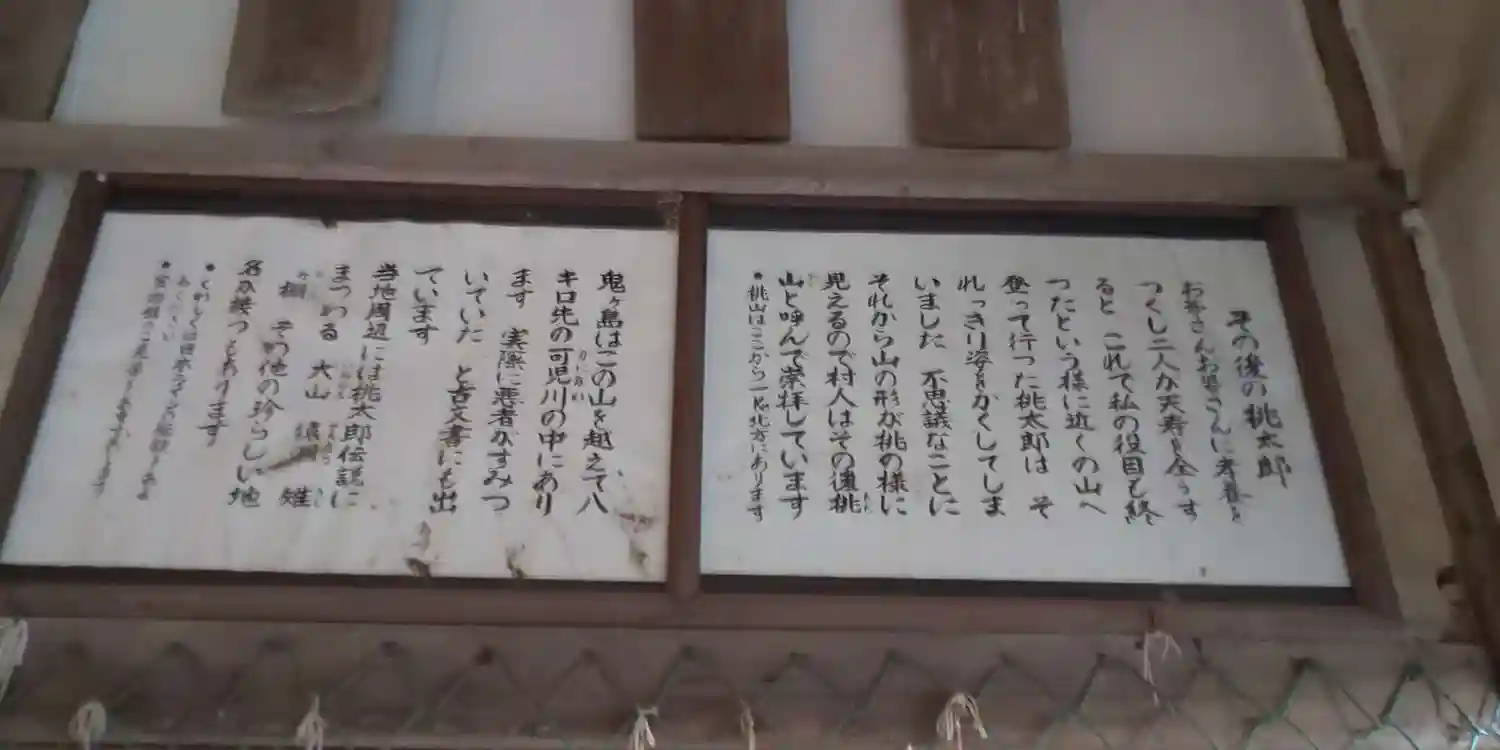 その後の桃太郎
お爺さんお婆さんに孝養を
つくし二人が天寿を全うす
ると これで私の役目も終
ったという様に近くの山へ
登って行った桃太郎は そ
れっきり姿をかくしてしま
いました 不思議なことに
それから山の形が桃の様に
見えるので村人はその後桃
山と呼んで崇拝しています
●桃山はここから一Km北方にあります
鬼ヶ島はこの山を越えて八
キロ先の可児川の中にあり
ます 実際に悪者がすみつ
いていた と古文書にも出
ています
当地周辺には桃太郎伝説に
まつわる 犬山 猿洞 雉
棚 その他の珍らしい地
名が残っております